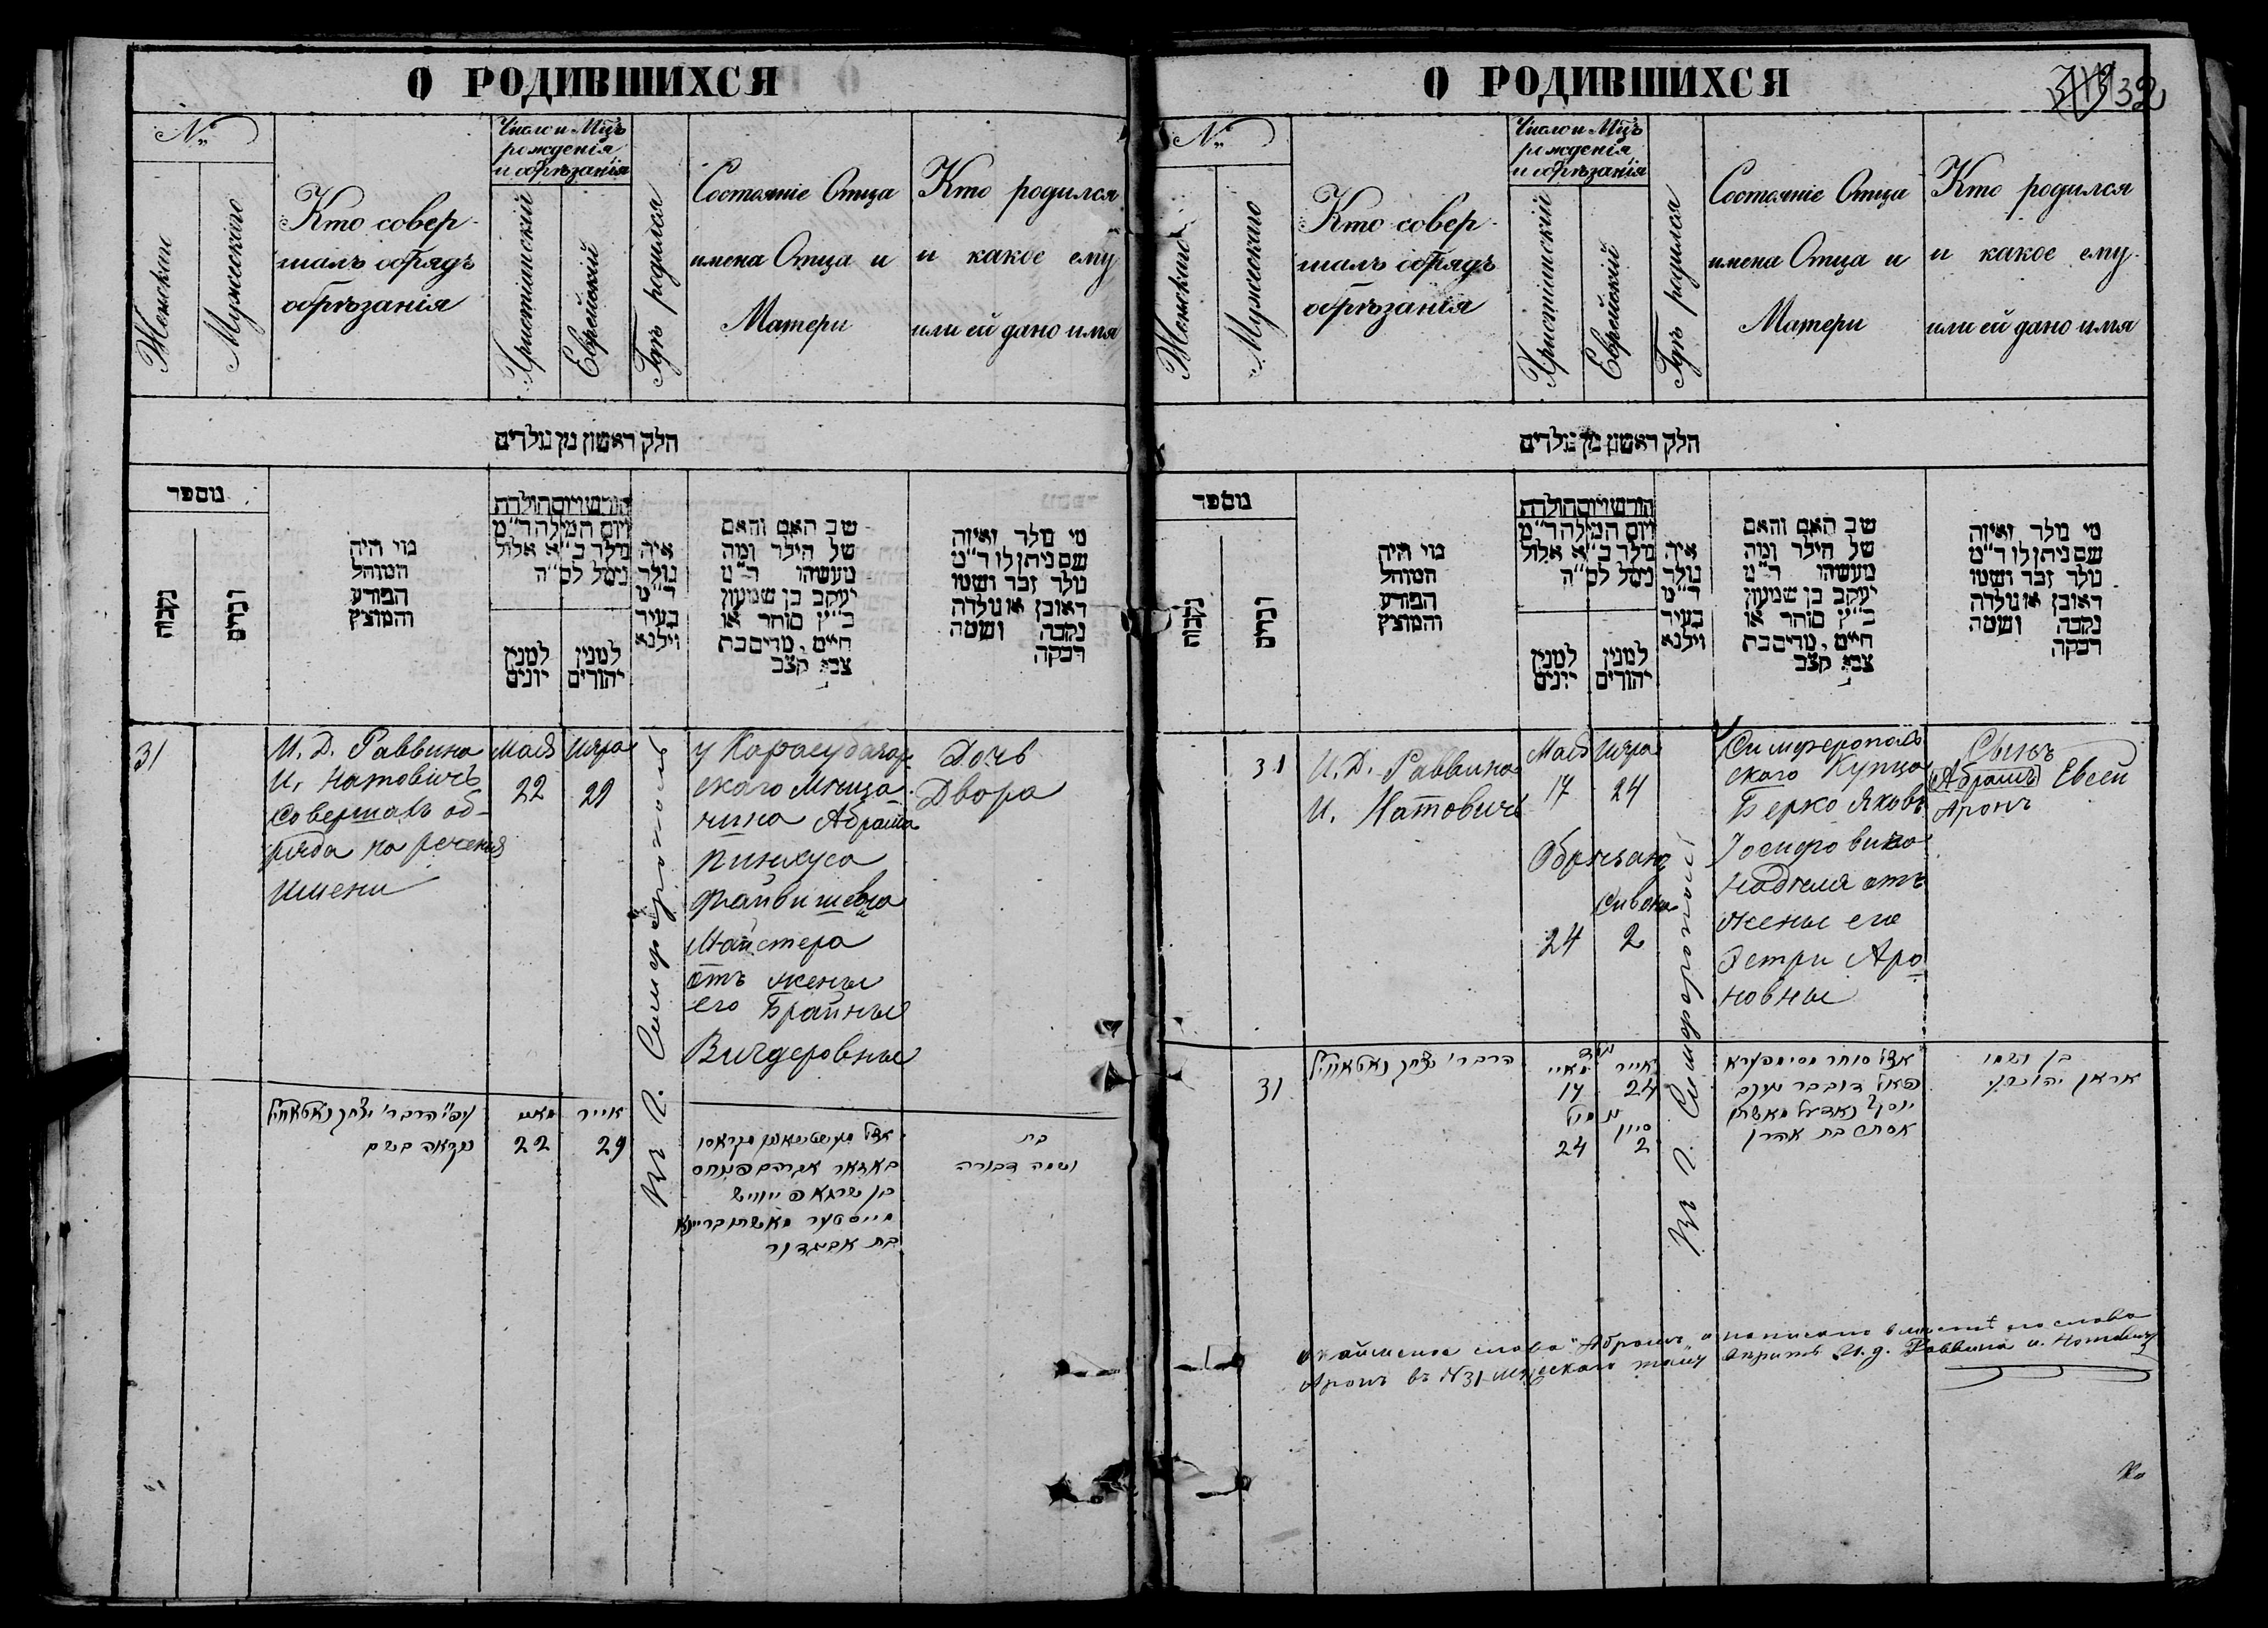 О РОДИВШИХСЯ
№
Женскаго
Мужескаго
Кто совер-
шалъ обрядъ
обрѣзанія
Число и Мцъ
рожденія
и обрѣзанія
Христіанскій
Еврейскій
Гдѣ родился
Состояніе Отца
имена Отца и
Матери
Кто родился
и какое ему
или ей дано имя
חלק ראשון מן נולדים
מספר
נקבות
זכרים
מי היה
המוהל
הפורע
והמוצץ
חודש ויום הולדת
ויום המילה ד״מ
נולד כ״א אלול
נימל לס״ה
למנין
יונים
למנין
יהודים
איה
נולד
ד״מ
בעיר
ווילנא
שב האם והאם
של הילד ומה
מעשהו ד״מ
יעקב בן שמעון
כ״ץ סוחר או
חיים, מרים בת
צבי קצב
מי נולד ואיזה
שם ניתן לו ד״מ
נולד זכר ושמו
ראובן או נולדה
נקבה ושמה
רבקה
31
И. Д. Раввина
И. Натовичъ
совершалъ об-
ряда наречения
имени
Мая
22
Ияра
29
Въ г. Симферополѣ
У Карасубазар-
скаго Мѣща-
нина Абрама
Пинхуса
Файвишева
Майстера
отъ жены
его Брайны
Вигдеровны
Дочь
Двора
הרב ר׳ יצחק נאטאוויץ
נקראה בשם
מאי
22
אייר
29
אצל
אברהם פנחס
בן שרגא פייוויש
מייסטער מאשתו בריינא
בת אביגדור
בת
ושמה דבורה
О РОДИВШИХСЯ
32
№
Женскаго
Мужескаго
Кто совер-
шалъ обрядъ
обрѣзанія
Число и Мцъ
рожденія
и обрѣзанія
Христіанскій
Еврейскій
Гдѣ родился
Состояніе Отца
имена Отца и
Матери
Кто родился
и какое ему
или ей дано имя
חלק ראשון מן נולדים
מספר
נקבות
זכרים
מי היה
המוהל
הפורע
והמוצץ
חודש ויום הולדת
ויום המילה ד״מ
נולד כ״א אלול
נימל לס״ה
למנין
יונים
למנין
יהודים
איה
נולד
ד״מ
בעיר
ווילנא
שב האם והאם
של הילד ומה
מעשהו ד״מ
יעקב בן שמעון
כ״ץ סוחר או
חיים, מרים בת
צבי קצב
מי נולד ואיזה
שם ניתן לו ד״מ
נולד זכר ושמו
ראובן או נולדה
נקבה ושמה
רבקה
31
И. Д. Раввина
И. Натовичъ
Мая
17
Ияра
24
Обрѣзано
Сивона
24
2
Въ г. Симферополѣ
Симферополь
скаго Купца
Берко Яковъ
Іосифовича
Наделя отъ
жены его
Эстри Аро
новны
Сынъ
Абрамъ Евсей
Аронъ
31
הרב ר׳ יצחק נאטאוויץ
נולד
מאי
17
אייר
24
נימול
סיון
24
2
אצל סוחר מסימפערא
פאל דוב בר יעקב
יוסף נאדעל מאשתו
אסתר בת אהרן
בן ושמו
אהרן יהושע
Окаймленое слово „Абрамъ“ и написано вмѣсто слова
Аронъ въ N31 мужскаго вѣрить И. д. Раввина И. Натовичъ